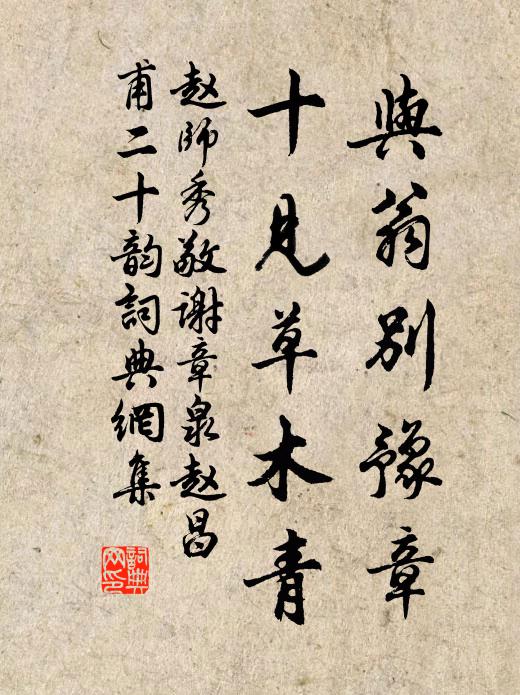 與翁別豫章
十見草木青
赵師秀敬谢章泉赵昌
甫二十韵詞典網集
詞典网印